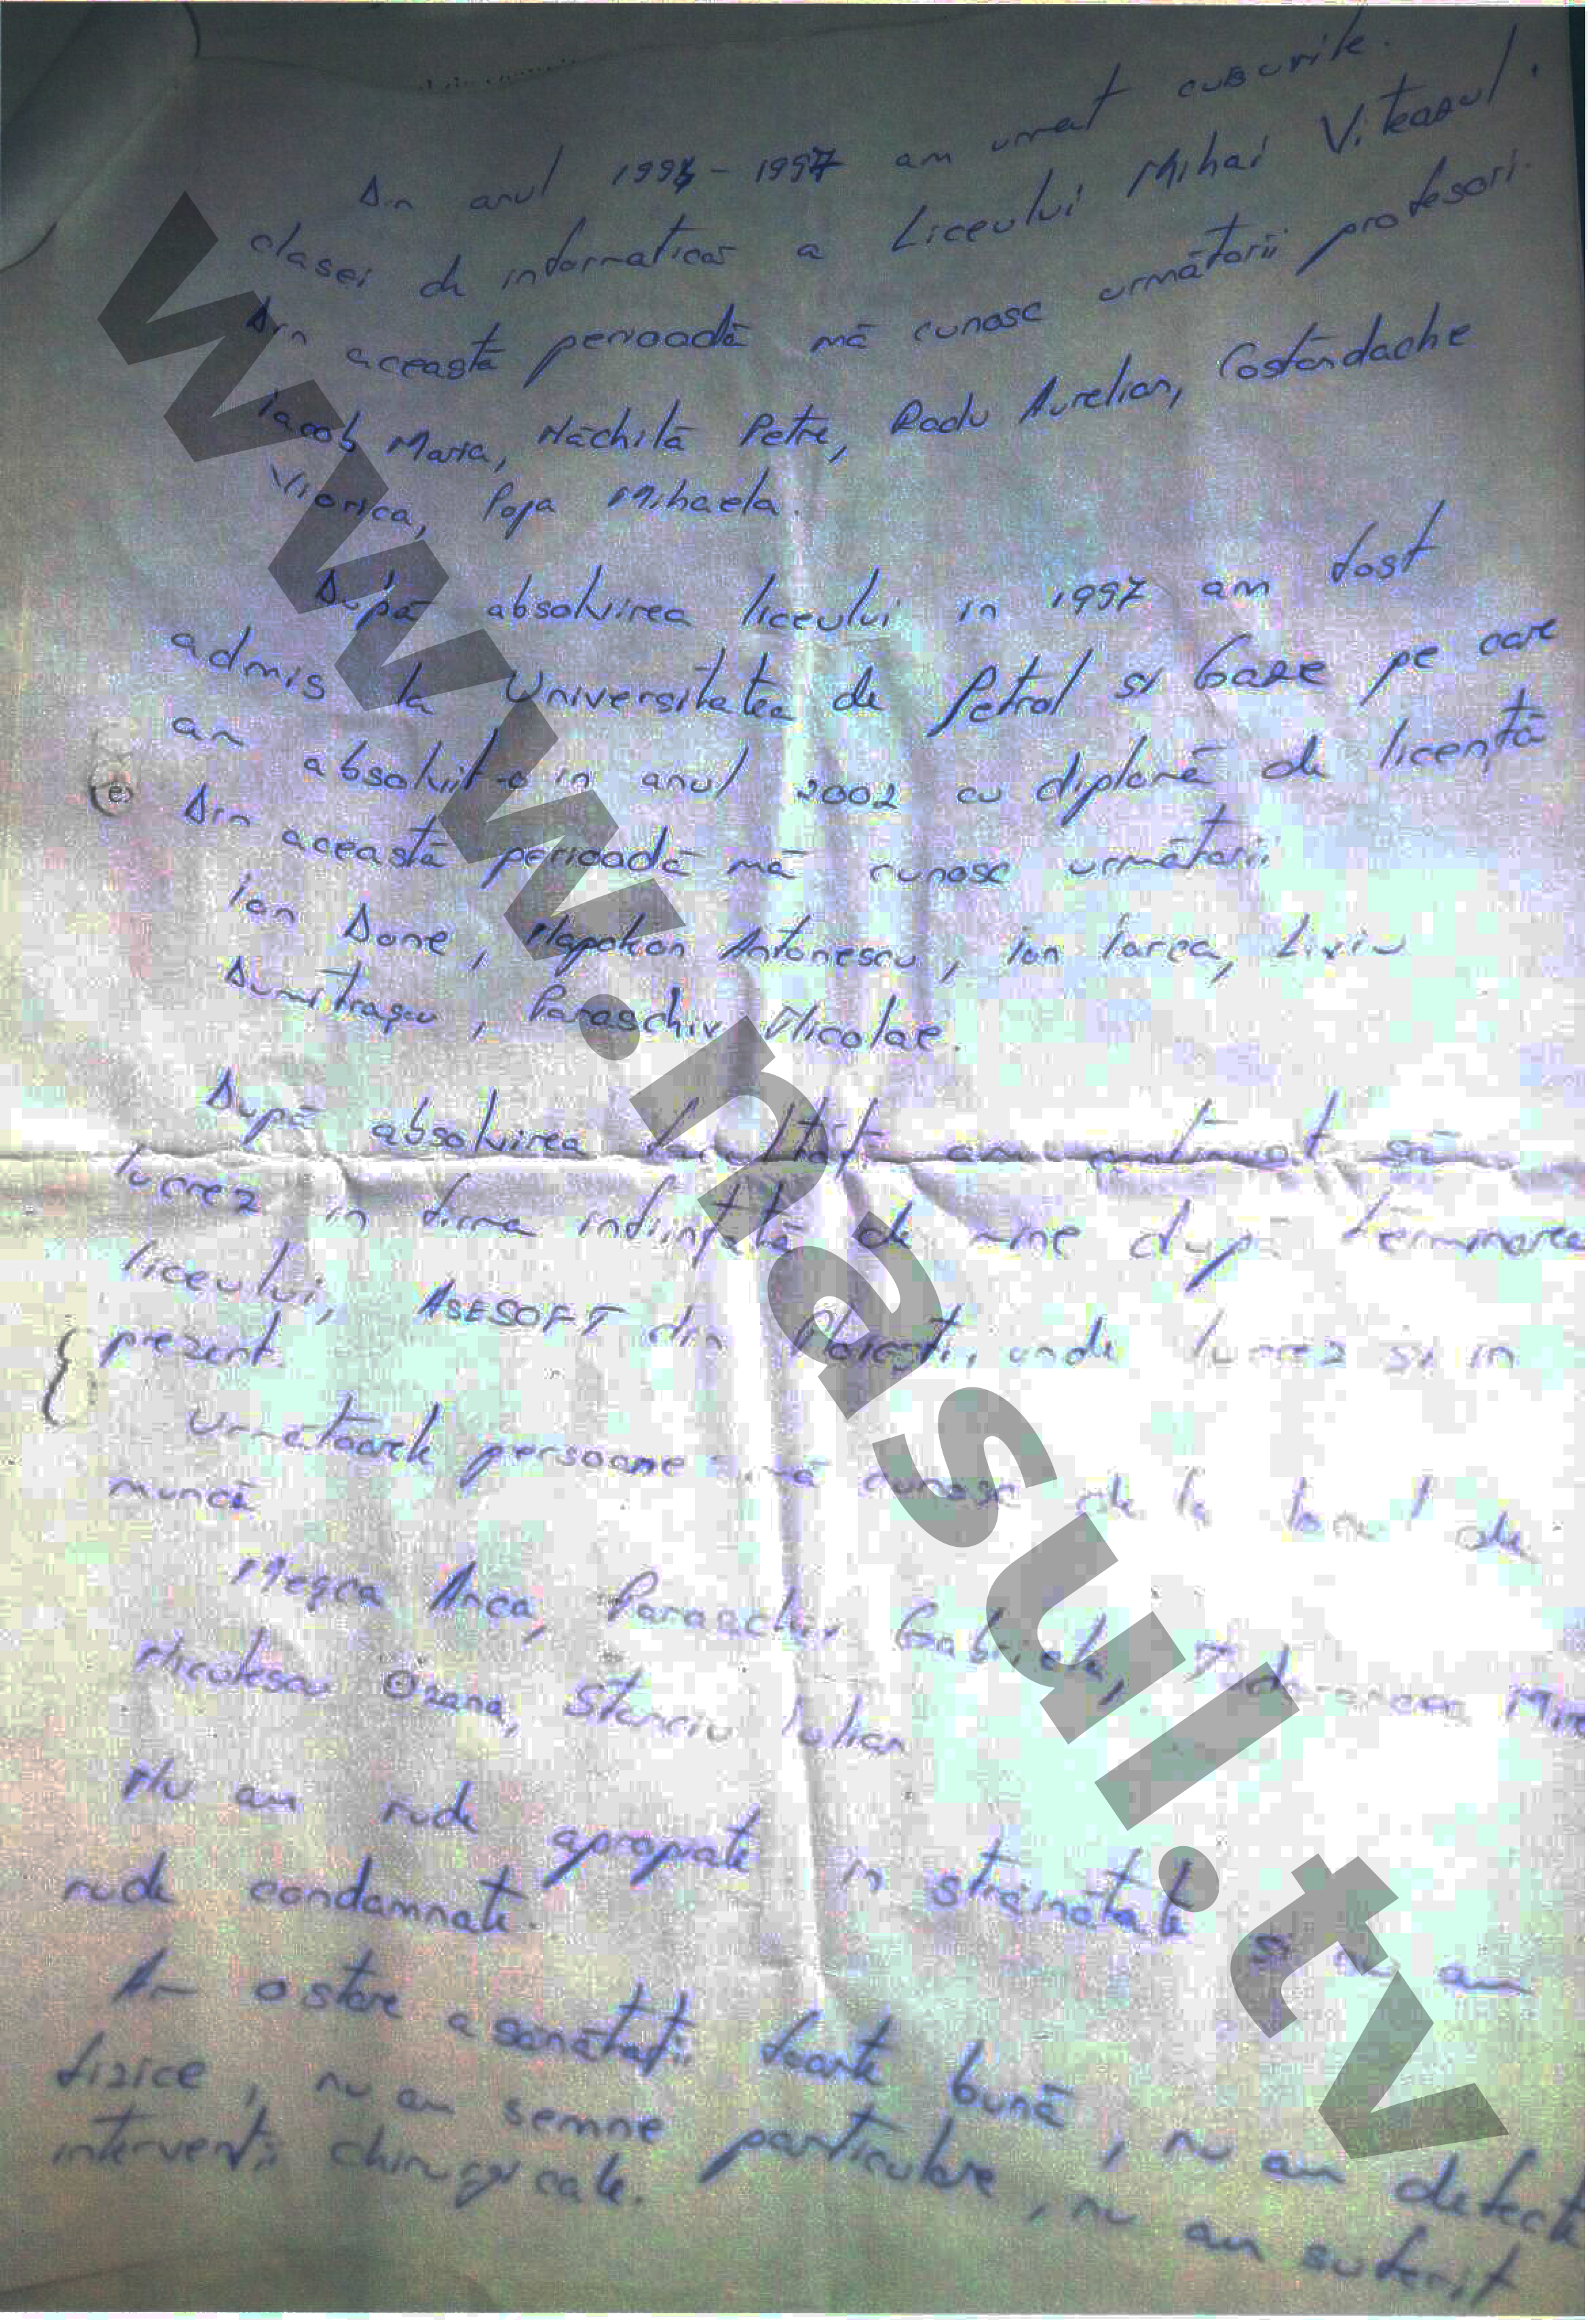 Din anul 1993-1997 am urmat cursurile
clasei de informatica a Liceului Mihai Viteazul.
Din această perioadă mă cunosc următorii profesori.
Iacob Maria, Năchilă Petre, Radu Aurelian, Costăndache
Viorica, Popa Mihaela.
După absolvirea liceului in 1997 am fost
admis la Universitatea de Petrol si Gaze pe care
am absolvit-o in anul 2002 cu diplomă de licență
Din această perioadă mă cunosc următorii
Ion Done, Napoleon Antonescu, Ion Iarca, Liviu
Dumitrașcu, Paraschiv Nicolae.
După absolvirea am continuat să
lucrez in firma inființată de mine după terminarea
liceului, ASESOFT din Ploiești, unde lucrez si in
prezent
Următoarele persoane mă cunosc de la locul de
muncă
Anca, Paraschiv Gabriela,
Niculescu Ozana, Stanciu Iulian
Nu am rude apropiate in străinătate si nu am
rude condamnate.
Am o stare a sănătații foarte bună, nu am defecte
fizice, nu am semne particulare, nu am suferit
intervenții chirurgicale.
www.nasul.tv